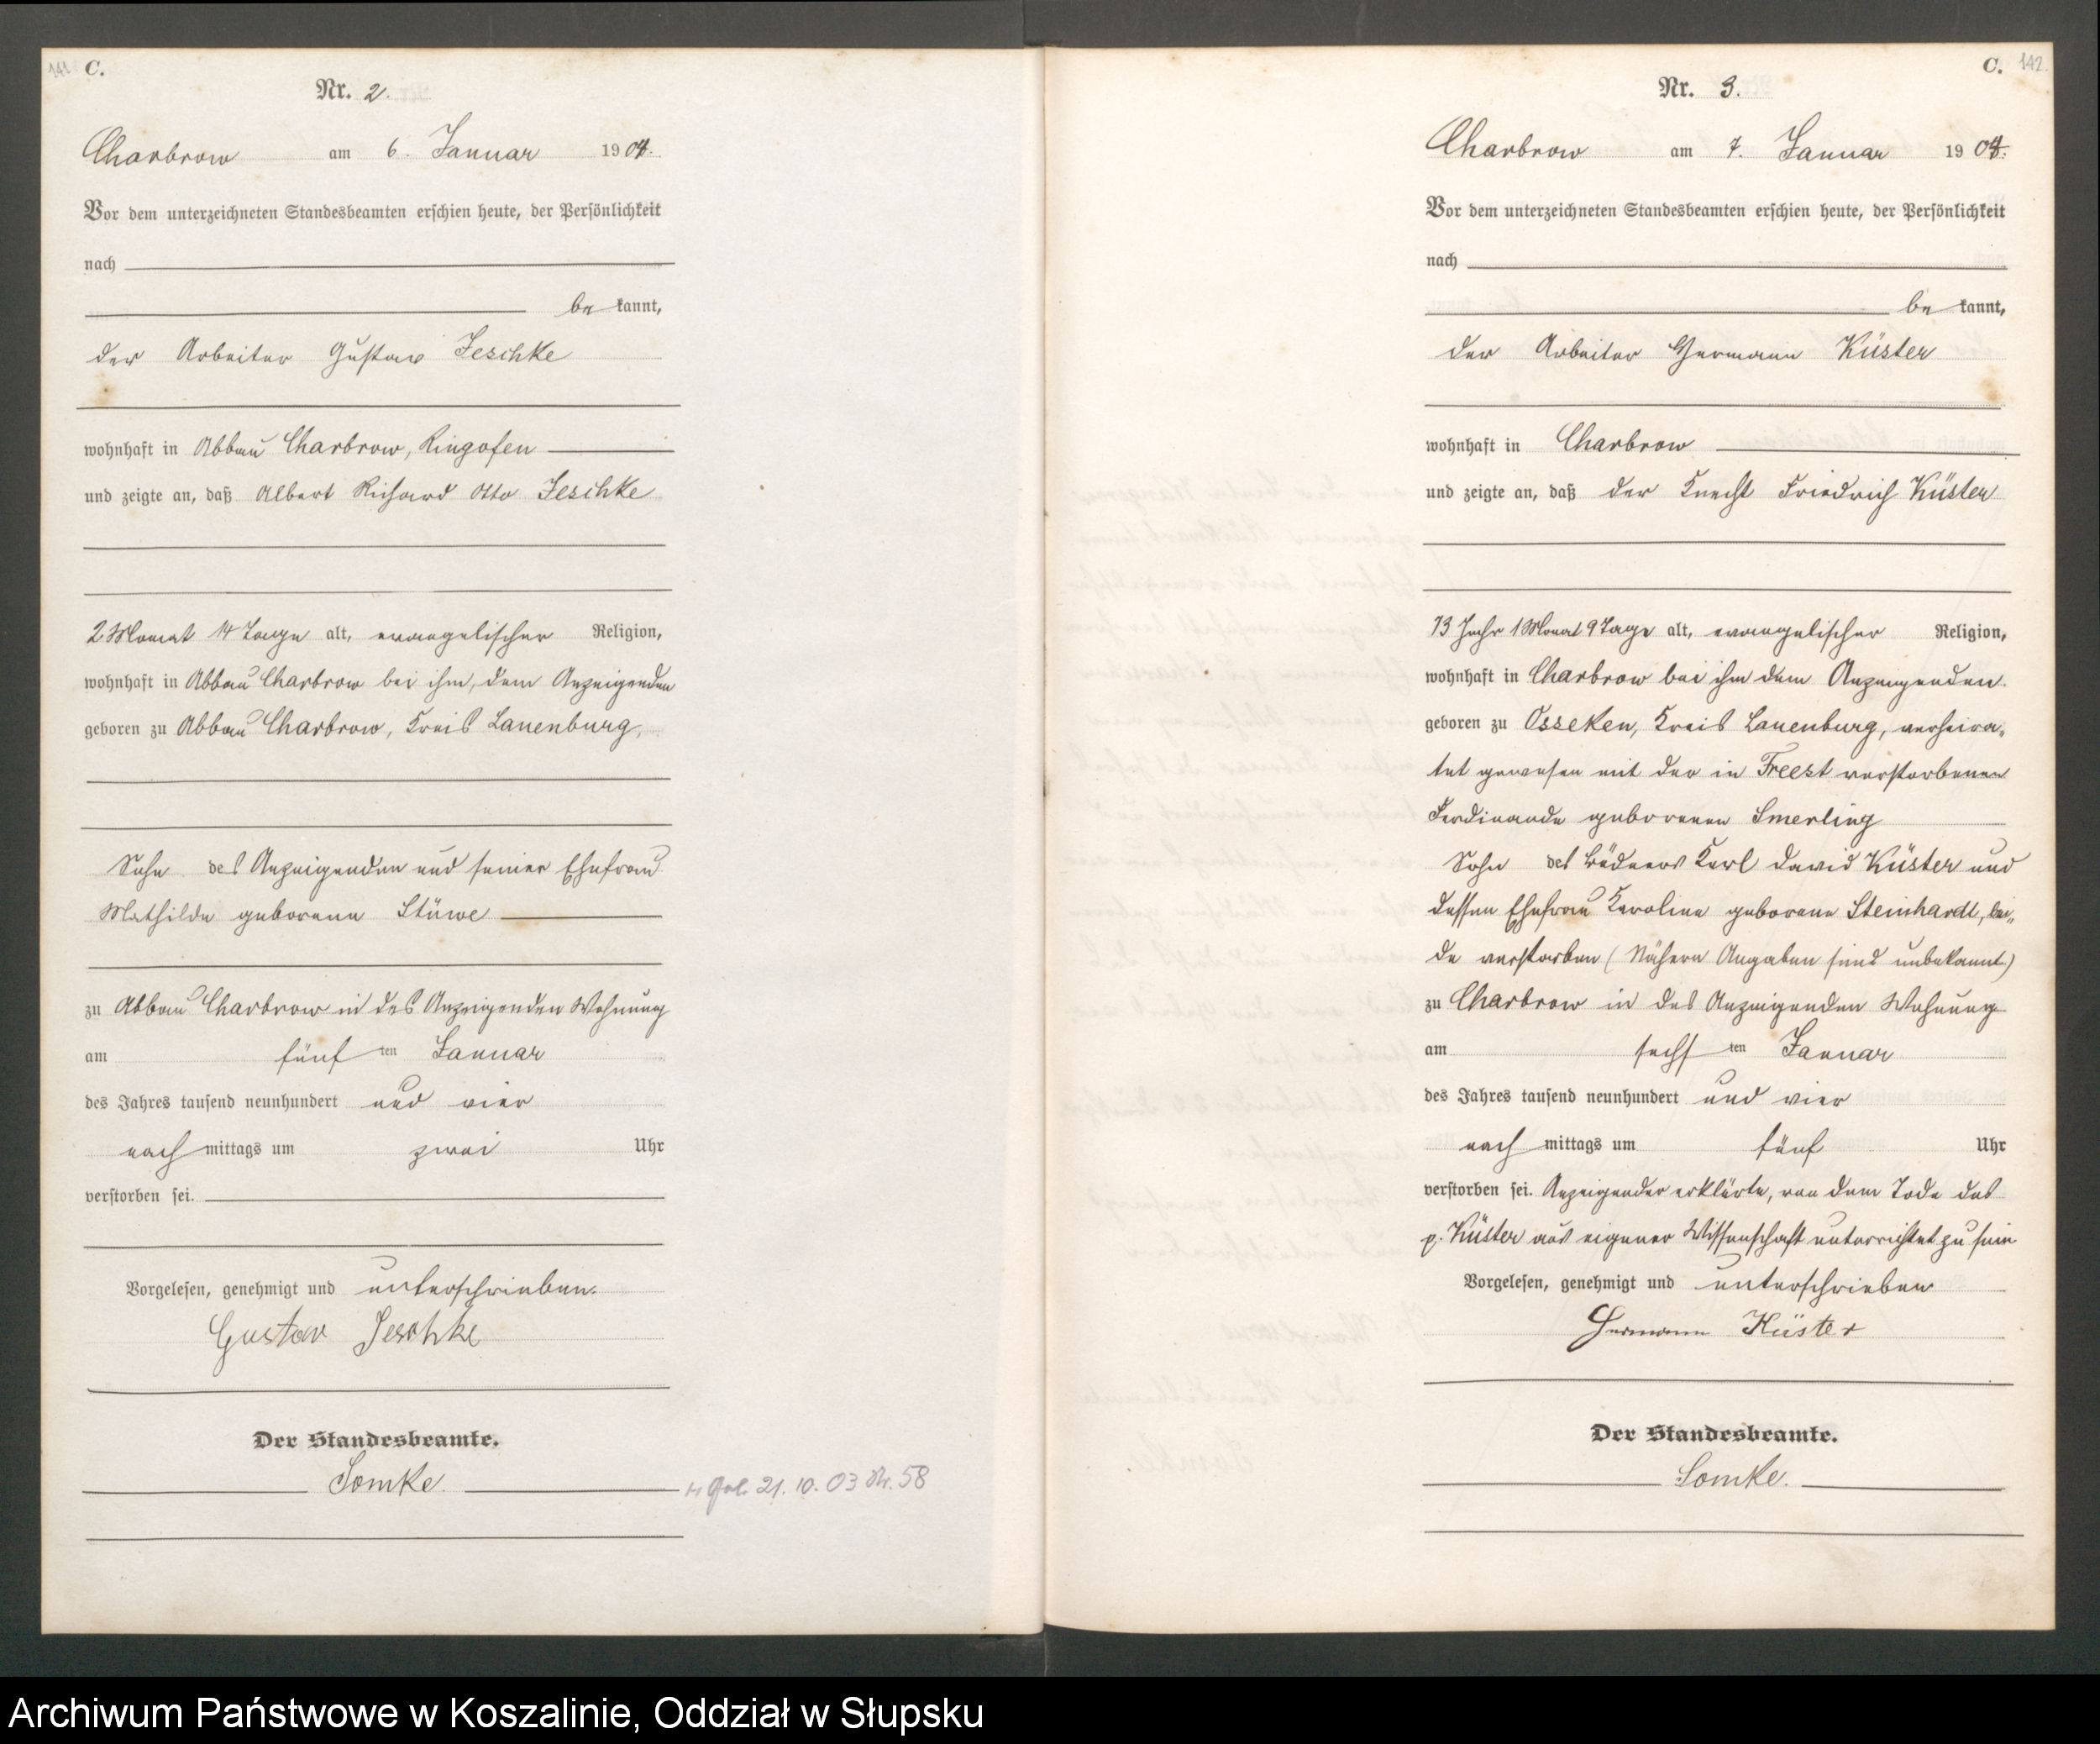 141 C.
Nr. 2.
Charbrow am 6. Januar 1904.
Vor dem unterzeichneten Standesbeamten erschien heute, der Persönlichkeit
nach
be kannt,
der Arbeiter Gustav Jeschke
wohnhaft in Abbau Charbrow, Ringofen
und zeigte an, daß Albert Richard Otto Jeschke
2 Monat 14 Tage alt, evangelischer Religion,
wohnhaft in Abbau Charbrow bei ihm, dem Anzeigenden
geboren zu Abbau Charbrow, Kreis Lauenburg,
Sohn des Anzeigenden und seiner Ehefrau
Mathilde geborene Stüwe
zu Abbau Charbrow in des Anzeigenden Wohnung
am fünf ten Januar
des Jahres tausend neunhundert und vier
nach mittags um zwei Uhr
verstorben sei.
Vorgelesen, genehmigt und unterschrieben.
Gustav Jeschke
Der Standesbeamte.
Somke.
21. 10. 03 Nr. 58
C. 142
Nr. 3.
Charbrow am 7. Januar 1904.
Vor dem unterzeichneten Standesbeamten erschien heute, der Persönlichkeit
nach
be kannt,
der Arbeiter Hermann Küster
wohnhaft in Charbrow
und zeigte an, daß der Knecht Friedrich Küster
73 Jahr 1 Monat 9 Tage alt, evangelischer Religion,
wohnhaft in Charbrow bei ihm dem Anzeigenden.
geboren zu Osseken, Kreis Lauenburg, verheira-
tet gewesen mit der in Freest verstorbenen
Ferdinande geborenen Smerling
Sohn des Büdners Karl David Küster und
dessen Ehefrau Karoline geborene Steinhardt, bei-
de verstorben (Nähere Angaben sind unbekannt)
zu Charbrow in des Anzeigenden Wohnung
am sechs ten Januar
des Jahres tausend neunhundert und vier
nach mittags um fünf Uhr
verstorben sei. Anzeigender erklärte, von dem Tode des
p. Küster aus eigener Wissenschaft unterrichtet zu sein
Vorgelesen, genehmigt und unterschrieben
Hermann Küster
Der Standesbeamte.
Somke.
Archiwum Państwowe w Koszalinie, Oddział w Słupsku